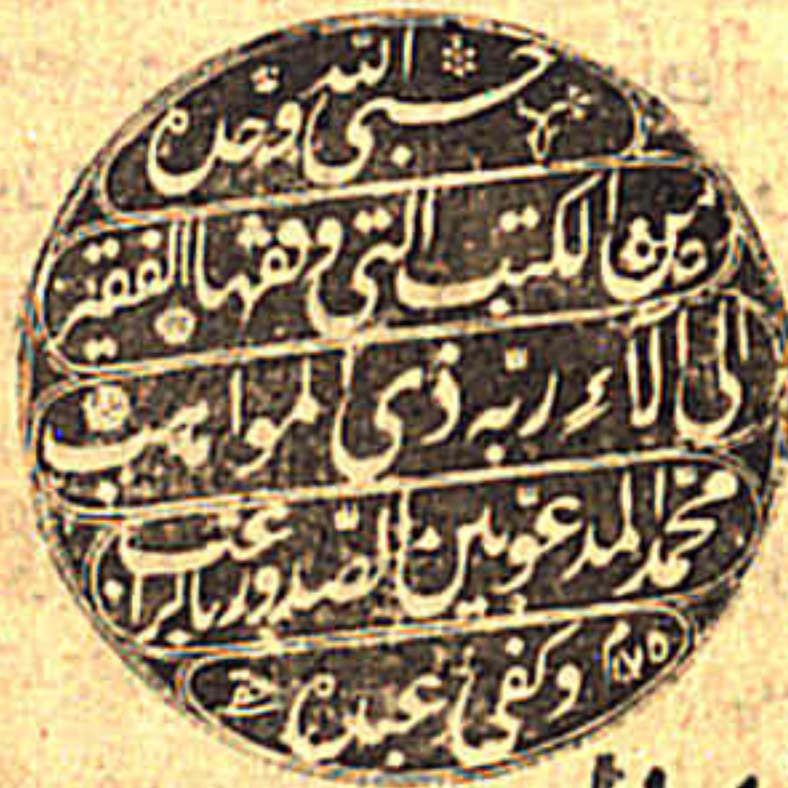 حسبى الله وحده
من الكتب التى وقفها الفقير
الى آلاء ربه ذي المواهب
محمد المدعو بين الصدور بالراغب
وكفى عبده